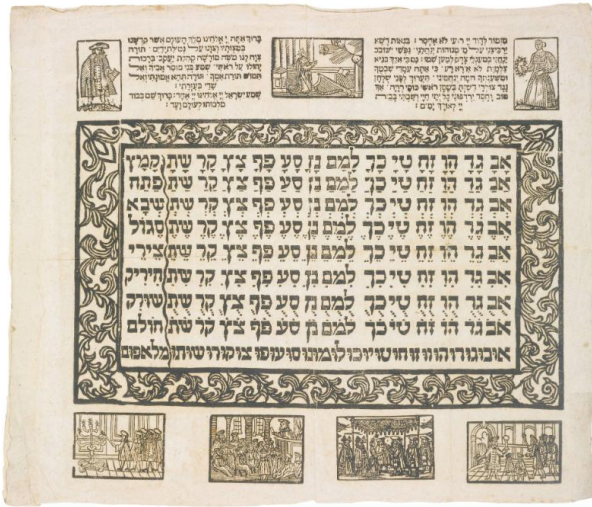 מזמור לדוד יי רעי לא אחסר : בנאות דשא
ירביצני על מי מנוחות ינהלני : נפשי ישובב
ינחני במעגלי צדק למען שמו : גם כי אלך בגיא
צלמות לא אירא רע כי אתה עמדי שבטך
ומשענתך המה ינחמוני : תערוך לפני שולחן
נגד צוררי דשנת בשמן ראשי כוסי רויה : אך
טוב וחסד ירדפוני כל ימי חיי ושבתי בבית
יי לאורך ימים :
ברוך אתה יי אלהינו מלך העולם אשר קדשנו
במצותיו וצונו על נטילת ידים : תורה
צוה לנו משה מורשה קהלת יעקב : ברכות
יחולו על ראשי : שמע בני מוסר אביך ואל
תטוש תורת אמך : תורה תהא אמונתי ואל
שדי בעזרתי :
שמע ישראל יי אלהינו יי אחד : ברוך שם כבוד
מלכותו לעולם ועד :
אָבָ גָדָ הָוָ זָחָ טָיָ כָךָ לָמָםָ נָןָ סָעָ פָףָ צָץָ קָרָ שָתָ קָמָץ
אַבַ גַדַ הַוַ זַחַ טַיַ כַךַ לַמַםַ נַןַ סַעַ פַףַ צַץַ קַרַ שַתַ פַתַח
אְבְ גְדְ הְוְ זְחְ טְיְ כְךְ לְמְםְ נְןְ סְעְ פְףְ צְץְ קְרְ שְתְ שְבָא
אֶבֶ גֶדֶ הֶוֶ זֶחֶ טֶיֶ כֶךֶ לֶמֶםֶ נֶןֶ סֶעֶ פֶףֶ צֶץֶ קֶרֶ שֶתֶ סֶגוֹל
אֵבֵ גֵדֵ הֵוֵ זֵחֵ טֵיֵ כֵךֵ לֵמֵםֵ נֵןֵ סֵעֵ פֵףֵ צֵץֵ קֵרֵ שֵתֵ צֵירֵי
אִבִ גִדִ הִוִ זִחִ טִיִ כִךִ לִמִםִ נִןִ סִעִ פִףִ צִץִ קִרִ שִתִ חִירִיק
אֻבֻ גֻדֻ הֻוֻ זֻחֻ טֻיֻ כֻךֻ לֻמֻםֻ נֻןֻ סֻעֻ פֻףֻ צֻץֻ קֻרֻ שֻתֻ שׁוּרֻק
אֹבֹ גֹדֹ הֹוֹ זֹחֹ טֹיֹ כֹךֹ לֹמֹםֹ נֹןֹ סֹעֹ פֹףֹ צֹץֹ קֹרֹ שֹתֹ חוֹלָם
אוּבוּגוּדוּהוּווּזוּחוּטוּיוּכוּלוּמוּנוּסוּעוּפוּצוּקוּרוּשוּתוּ מלאפום